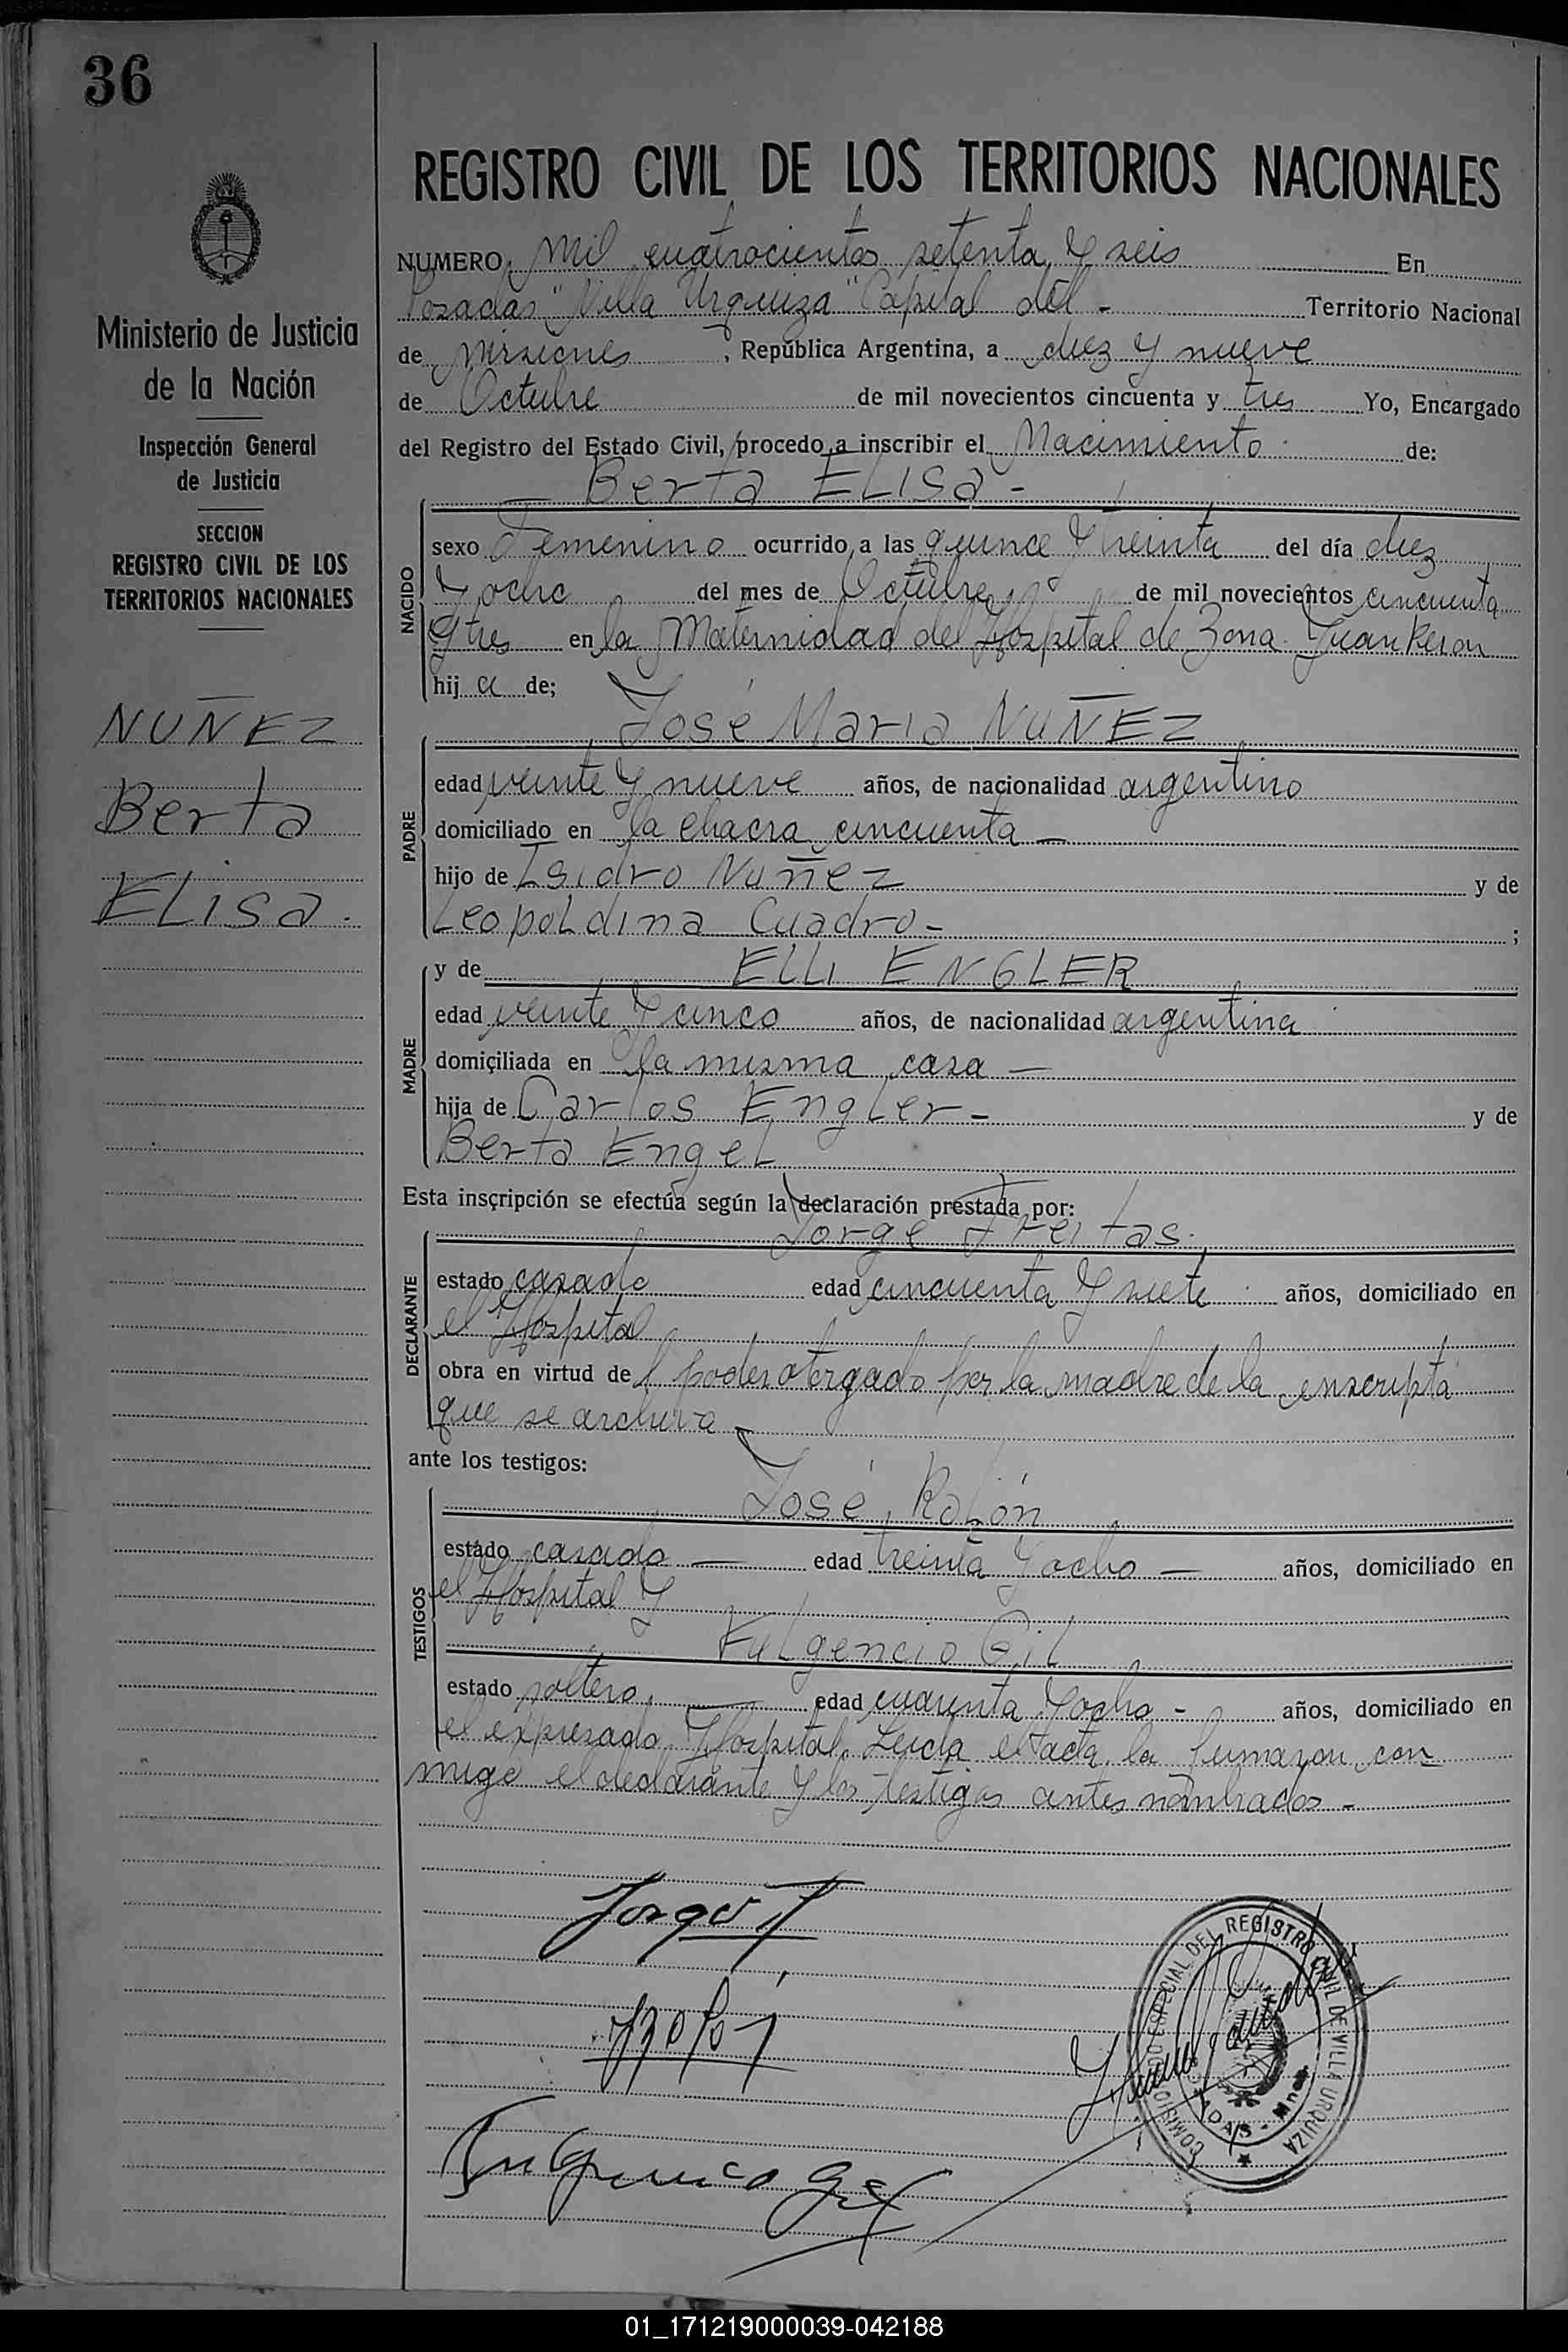 36
Ministerio de Justicia
de la Nación
Inspección General
de Justicia
SECCION
REGISTRO CIVIL DE LOS
TERRITORIOS NACIONALES
NUÑEZ
Berta
ELisa.
REGISTRO CIVIL DE LOS TERRITORIOS NACIONALES
NUMERO Mil cuatrocientos setenta y seis En
Posadas "Villa Urquiza" Capital del - Territorio Nacional
de Misiones, República Argentina, a diez y nueve
de Octubre de mil novecientos cincuenta y tres Yo, Encargado
del Registro del Estado Civil, procedo a inscribir el Nacimiento de:
- Berta ELisa -
NACIDO
sexo Femenino ocurrido a las quince y treinta del día diez
y ocho del mes de Octubre de mil novecientos cincuenta
y tres en la Maternidad del Hospital de Zona Juan Peron
hij a de;
José Maria NUÑEZ
PADRE
edad veinte y nueve años, de nacionalidad argentino
domiciliado en la chacra cincuenta -
hijo de Isidro Nuñez y de
Leopoldina Cuadro - ;
y de ELLi ENGLER
MADRE
edad veinte y cinco años, de nacionalidad argentina
domiciliada en la misma casa -
hija de Carlos Engler - y de
Berta Engel
Esta inscripción se efectúa según la declaración prestada por:
Jorge Freitas.
DECLARANTE
estado casado edad cincuenta y siete años, domiciliado en
el Hospital
obra en virtud del poder otorgado por la madre de la inscripta
que se archiva
ante los testigos:
José Rolón
TESTIGOS
estado casado - edad treinta y ocho - años, domiciliado en
el Hospital y
Fulgencio Gil
estado soltero, - edad cuarenta y ocho - años, domiciliado en
el expresado Hospital. Leida el acta, la firmaron con
migo el declarante y los testigos antes nombrados -
Jorge F
JRolón
Fulgencio Gil
COMISIONADO ESPECIAL DEL REGISTRO CIVIL DE VILLA URQUIZA
POSADAS - Mnes
01_171219000039-042188